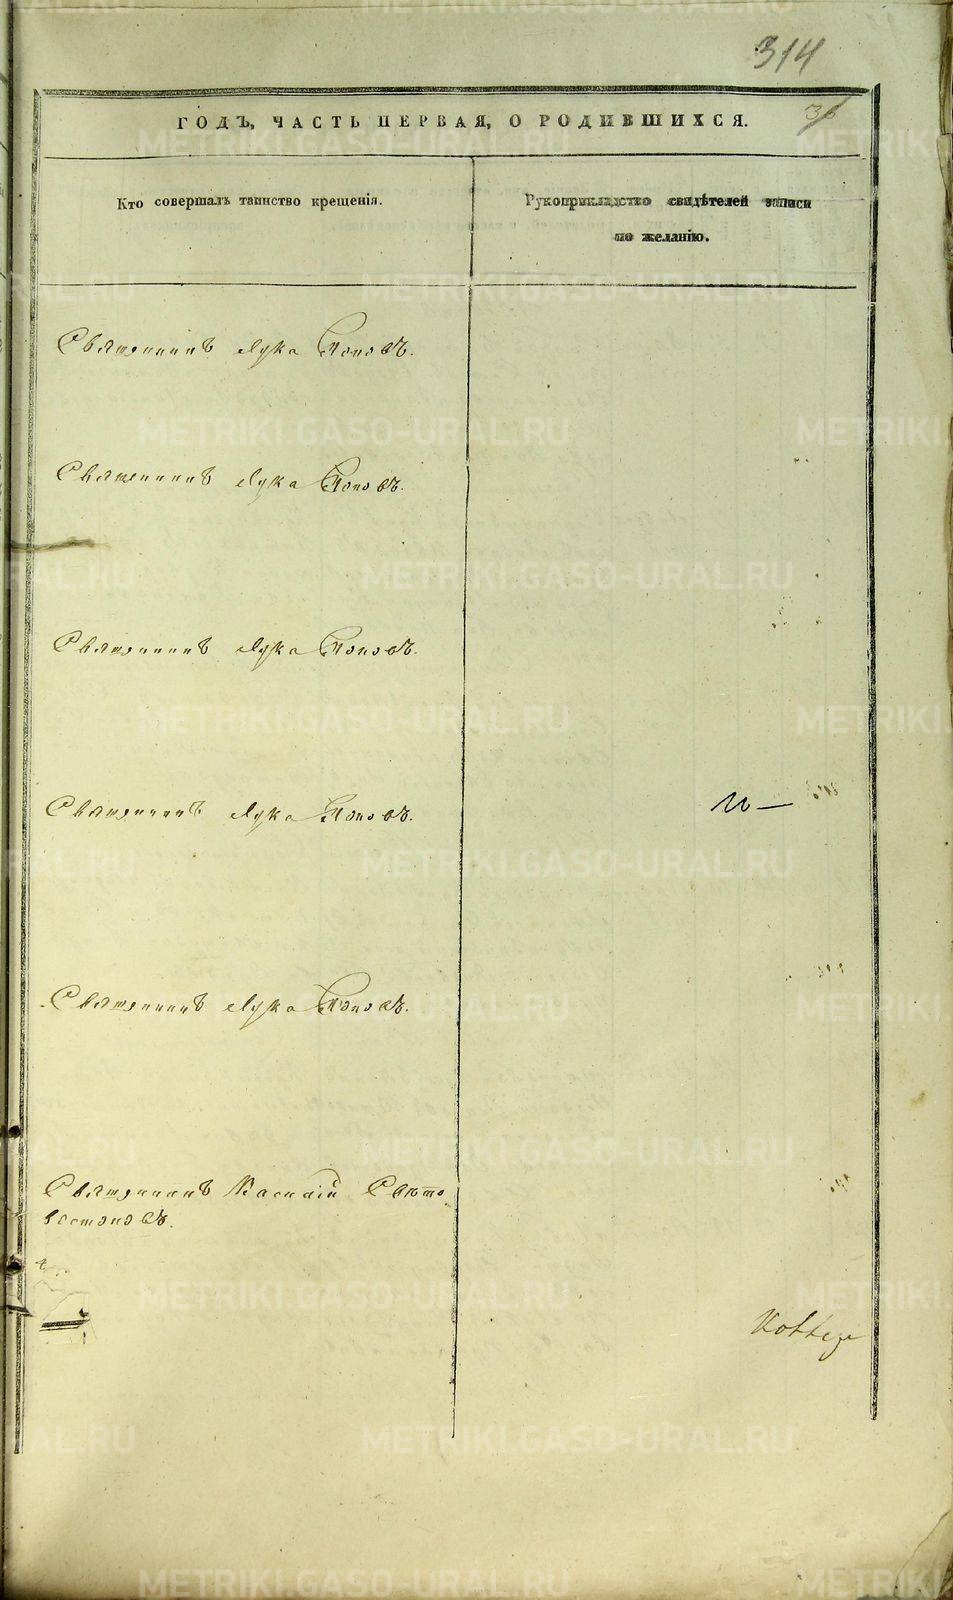 314
36
ГОДЪ, ЧАСТЬ ПЕРВАЯ, О РОДИВШИХСЯ.
Кто совершалъ таинство крещенія.
Рукоприкладство свидѣтелей записи
по желанію.
Священникъ Лука Поповъ.
Священникъ Лука Поповъ.
Священникъ Лука Поповъ.
Священникъ Лука Поповъ.
Священникъ Лука Поповъ.
Священникъ
METRIKI.GASO-URAL.RU